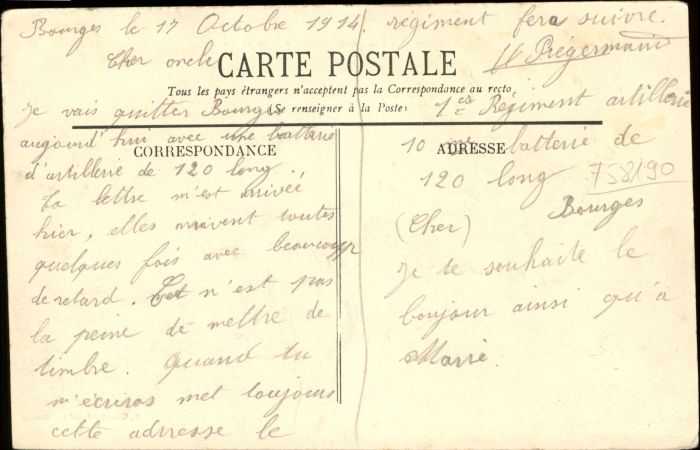 Bourges le 17 Octobre 1914.
Cher oncle
CARTE POSTALE
Tous les pays étrangers n'acceptent pas la Correspondance au recto
(Se renseigner à la Poste)
CORRESPONDANCE
Je vais quitter Bourges
aujourd'hui avec une batterie
d'artillerie de 120 long.
Ta lettre m'est arrivée
hier, elles arrivent toutes
quelques fois avec beaucoup
de retard. n'est pas
la peine de mettre de
timbre. Quand tu
m'écriras met toujours
cette adresse le
régiment fera suivre.
1er Régiment artillerie
ADRESSE
10 batterie de
120 long
758190
Bourges
(Cher)
Je te souhaite le
bonjour ainsi qu'a
Marie.